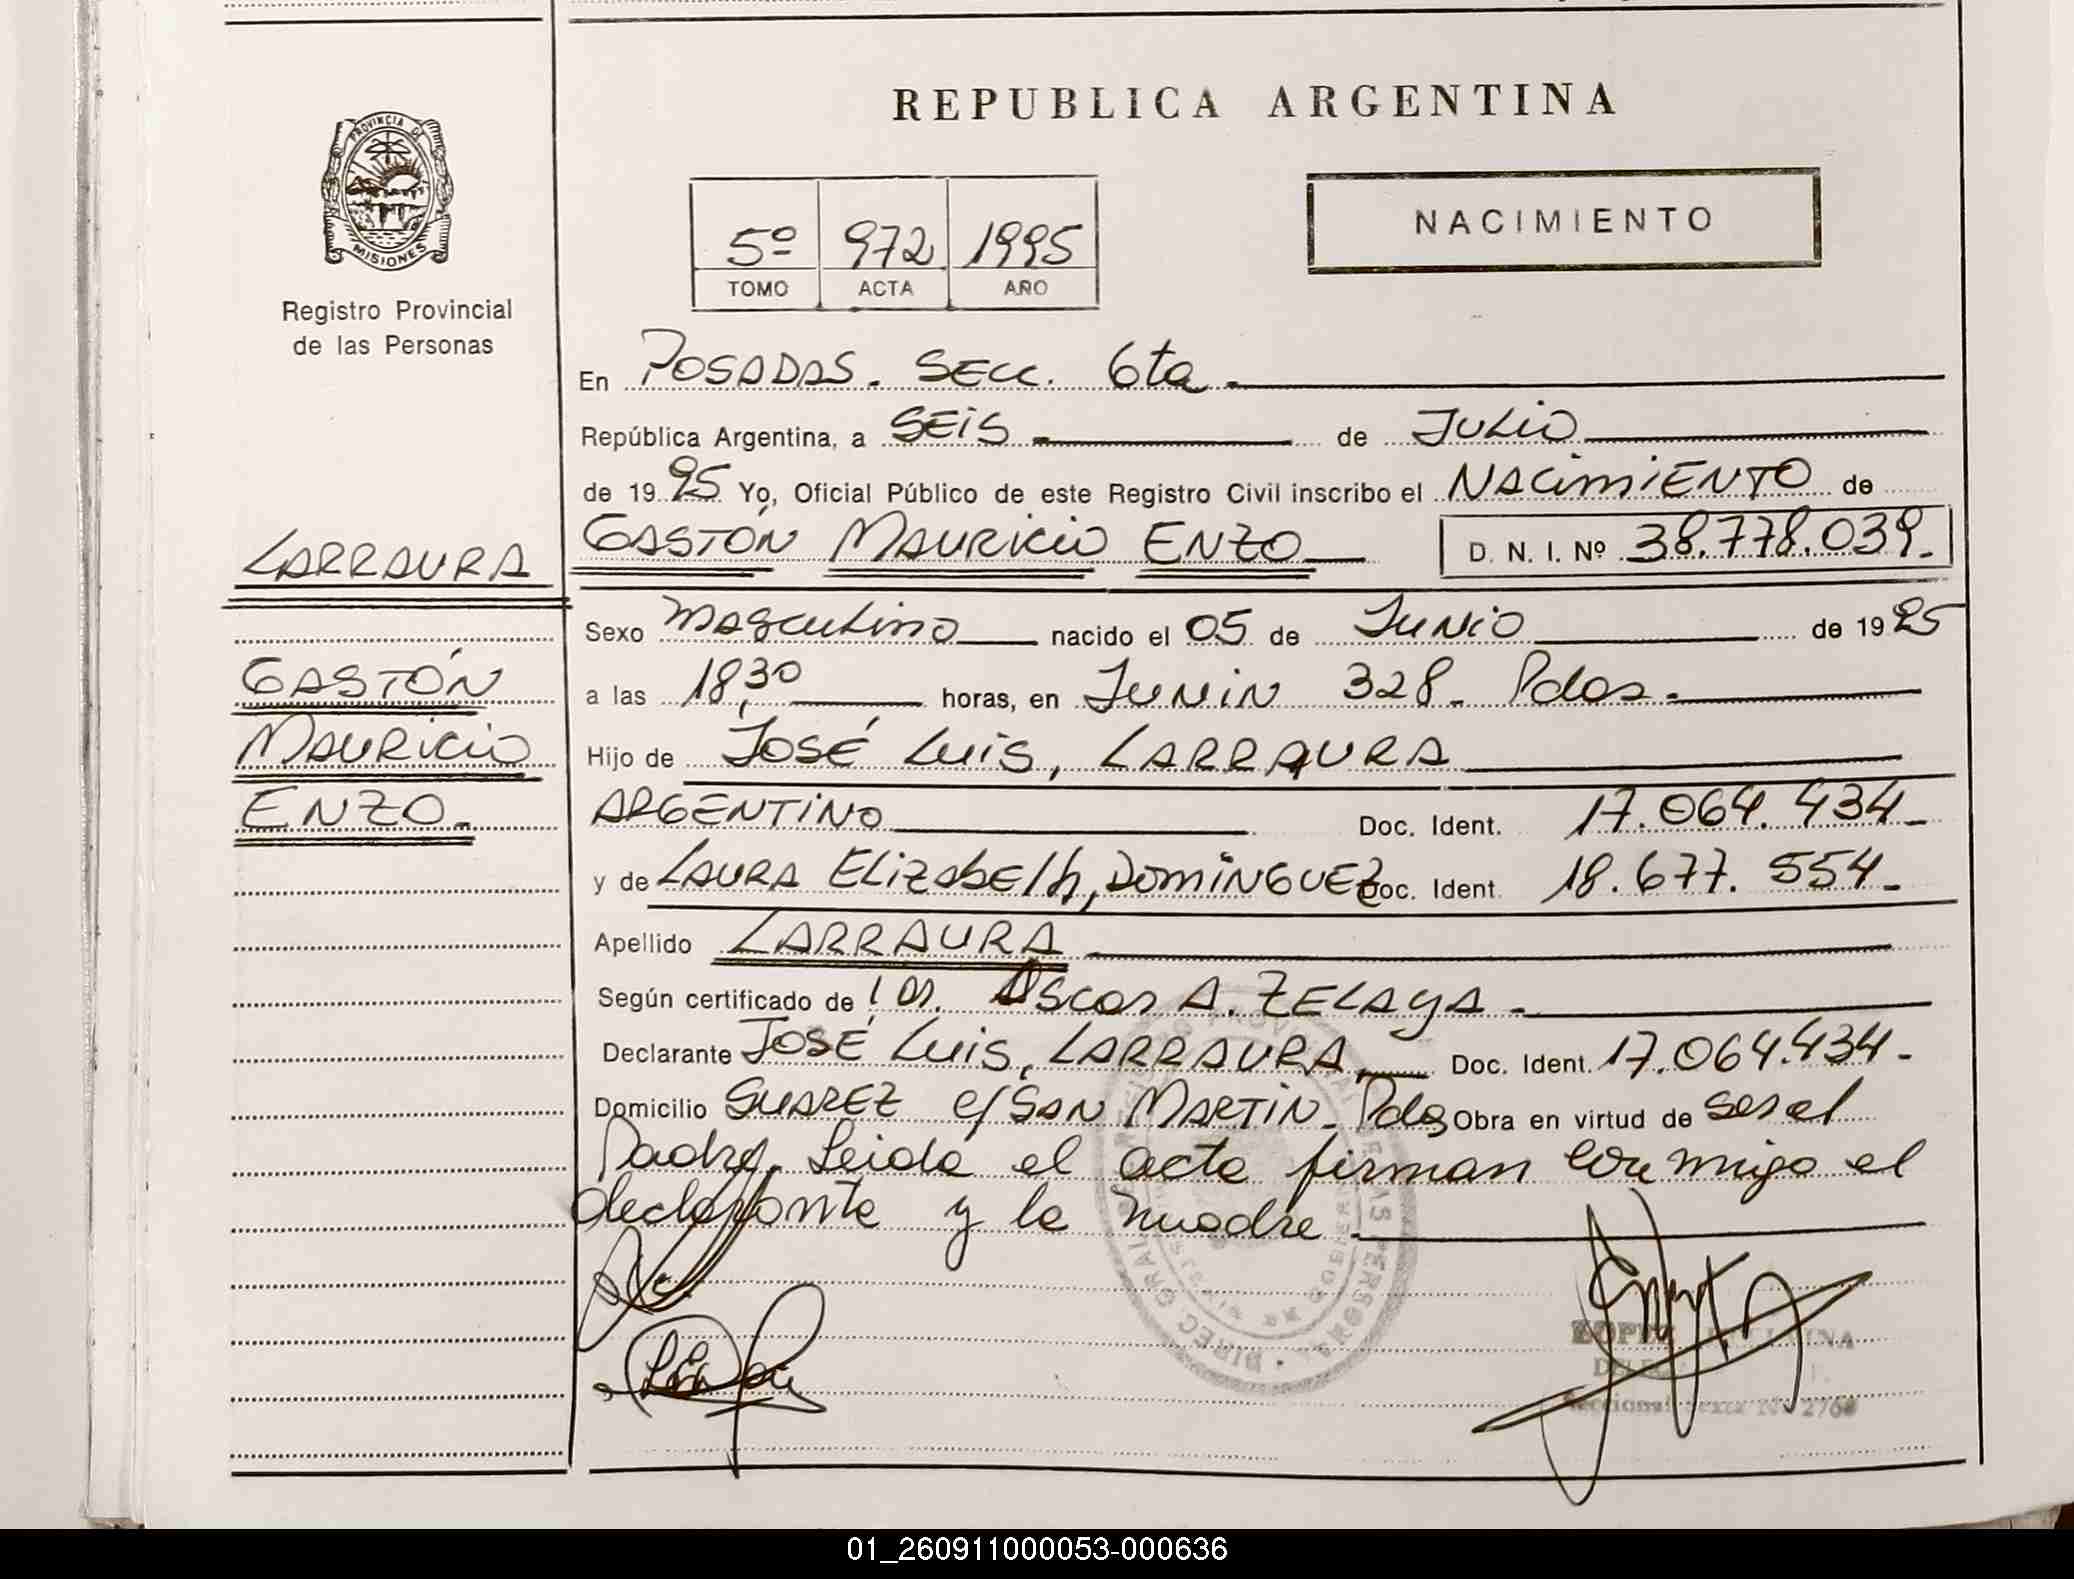 REPUBLICA ARGENTINA
PROVINCIA DE
MISIONES
Registro Provincial
de las Personas
NACIMIENTO
5º 972 1995
TOMO ACTA AÑO
En POSADAS. SECC. 6ta.
República Argentina, a SEIS de JULIO
de 1995 Yo, Oficial Público de este Registro Civil inscribo el NACIMIENTO de
LARRAURA
GASTÓN MAURICIO ENZO D. N. I. Nº 38.778.039.
Sexo masculino nacido el 05 de JUNIO de 1995
GASTÓN
MAURICIO
ENZO.
a las 18,30 horas, en JUNIN 328. Pdas.
Hijo de JOSÉ LUIS, LARRAURA
ARGENTINO Doc. Ident. 17.064.434.
y de LAURA ELIZABETH, DOMINGUEZ Doc. Ident. 18.677.554.
Apellido LARRAURA
Según certificado de Oscar A. ZELAYA.
Declarante JOSÉ LUIS, LARRAURA. Doc. Ident. 17.064.434.
Domicilio SUAREZ e/ SAN MARTIN. Pdas Obra en virtud de ser el
Padre. Leida el acta firman conmigo el
declarante y la madre.
LOPEZ
Seccional Sexta Nº 2768
01_260911000053-000636